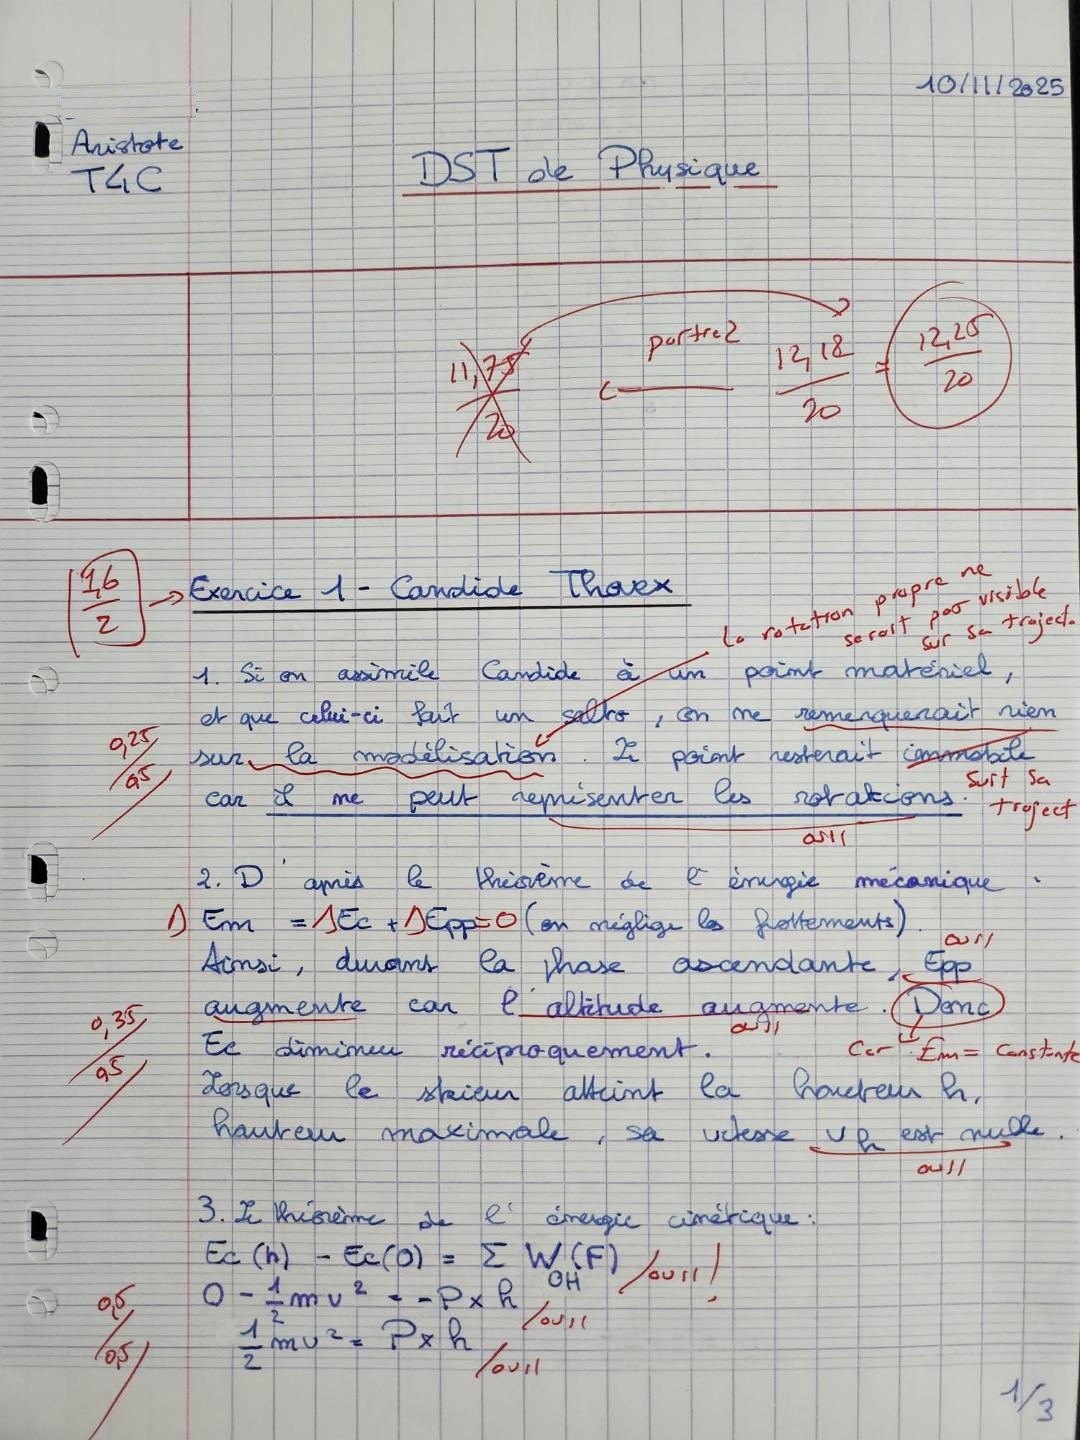 10/11/2025
Aristote
T4C
DST de Physique
11,75
20
partie 2
12,18
20
=
12,25
20
1,6
2
Exercice 1 - Candide Thovex
La rotation propre ne
serait pas visible
sur sa traject.
1. Si on assimile Candide à un point matériel,
et que celui-ci fait un salto, on ne remarquerait rien
sur la modélisation. Le point resterait immobile
car il ne peut représenter les rotations.
suit sa
traject
oui!
0,25
0,5
2. D'après le théorème de l'énergie mécanique :
Δ Em = ΔEc + ΔEpp = 0 (on néglige les frottements).
oui!
Ainsi, durant la phase ascendante, Epp
augmente car l'altitude augmente. Donc
oui!
Car Em = constante
Ec diminue réciproquement.
Lorsque le skieur atteint la hauteur h,
hauteur maximale, sa vitesse vh est nulle.
oui!
0,35
0,5
3. Le théorème de l'énergie cinétique :
Ec(h) - Ec(0) = Σ W(F) /oui!!
OH
0 - 1/2 mv² = -P x h /oui!
1/2 mv² = P x h /oui!
0,5
0,5
1/3